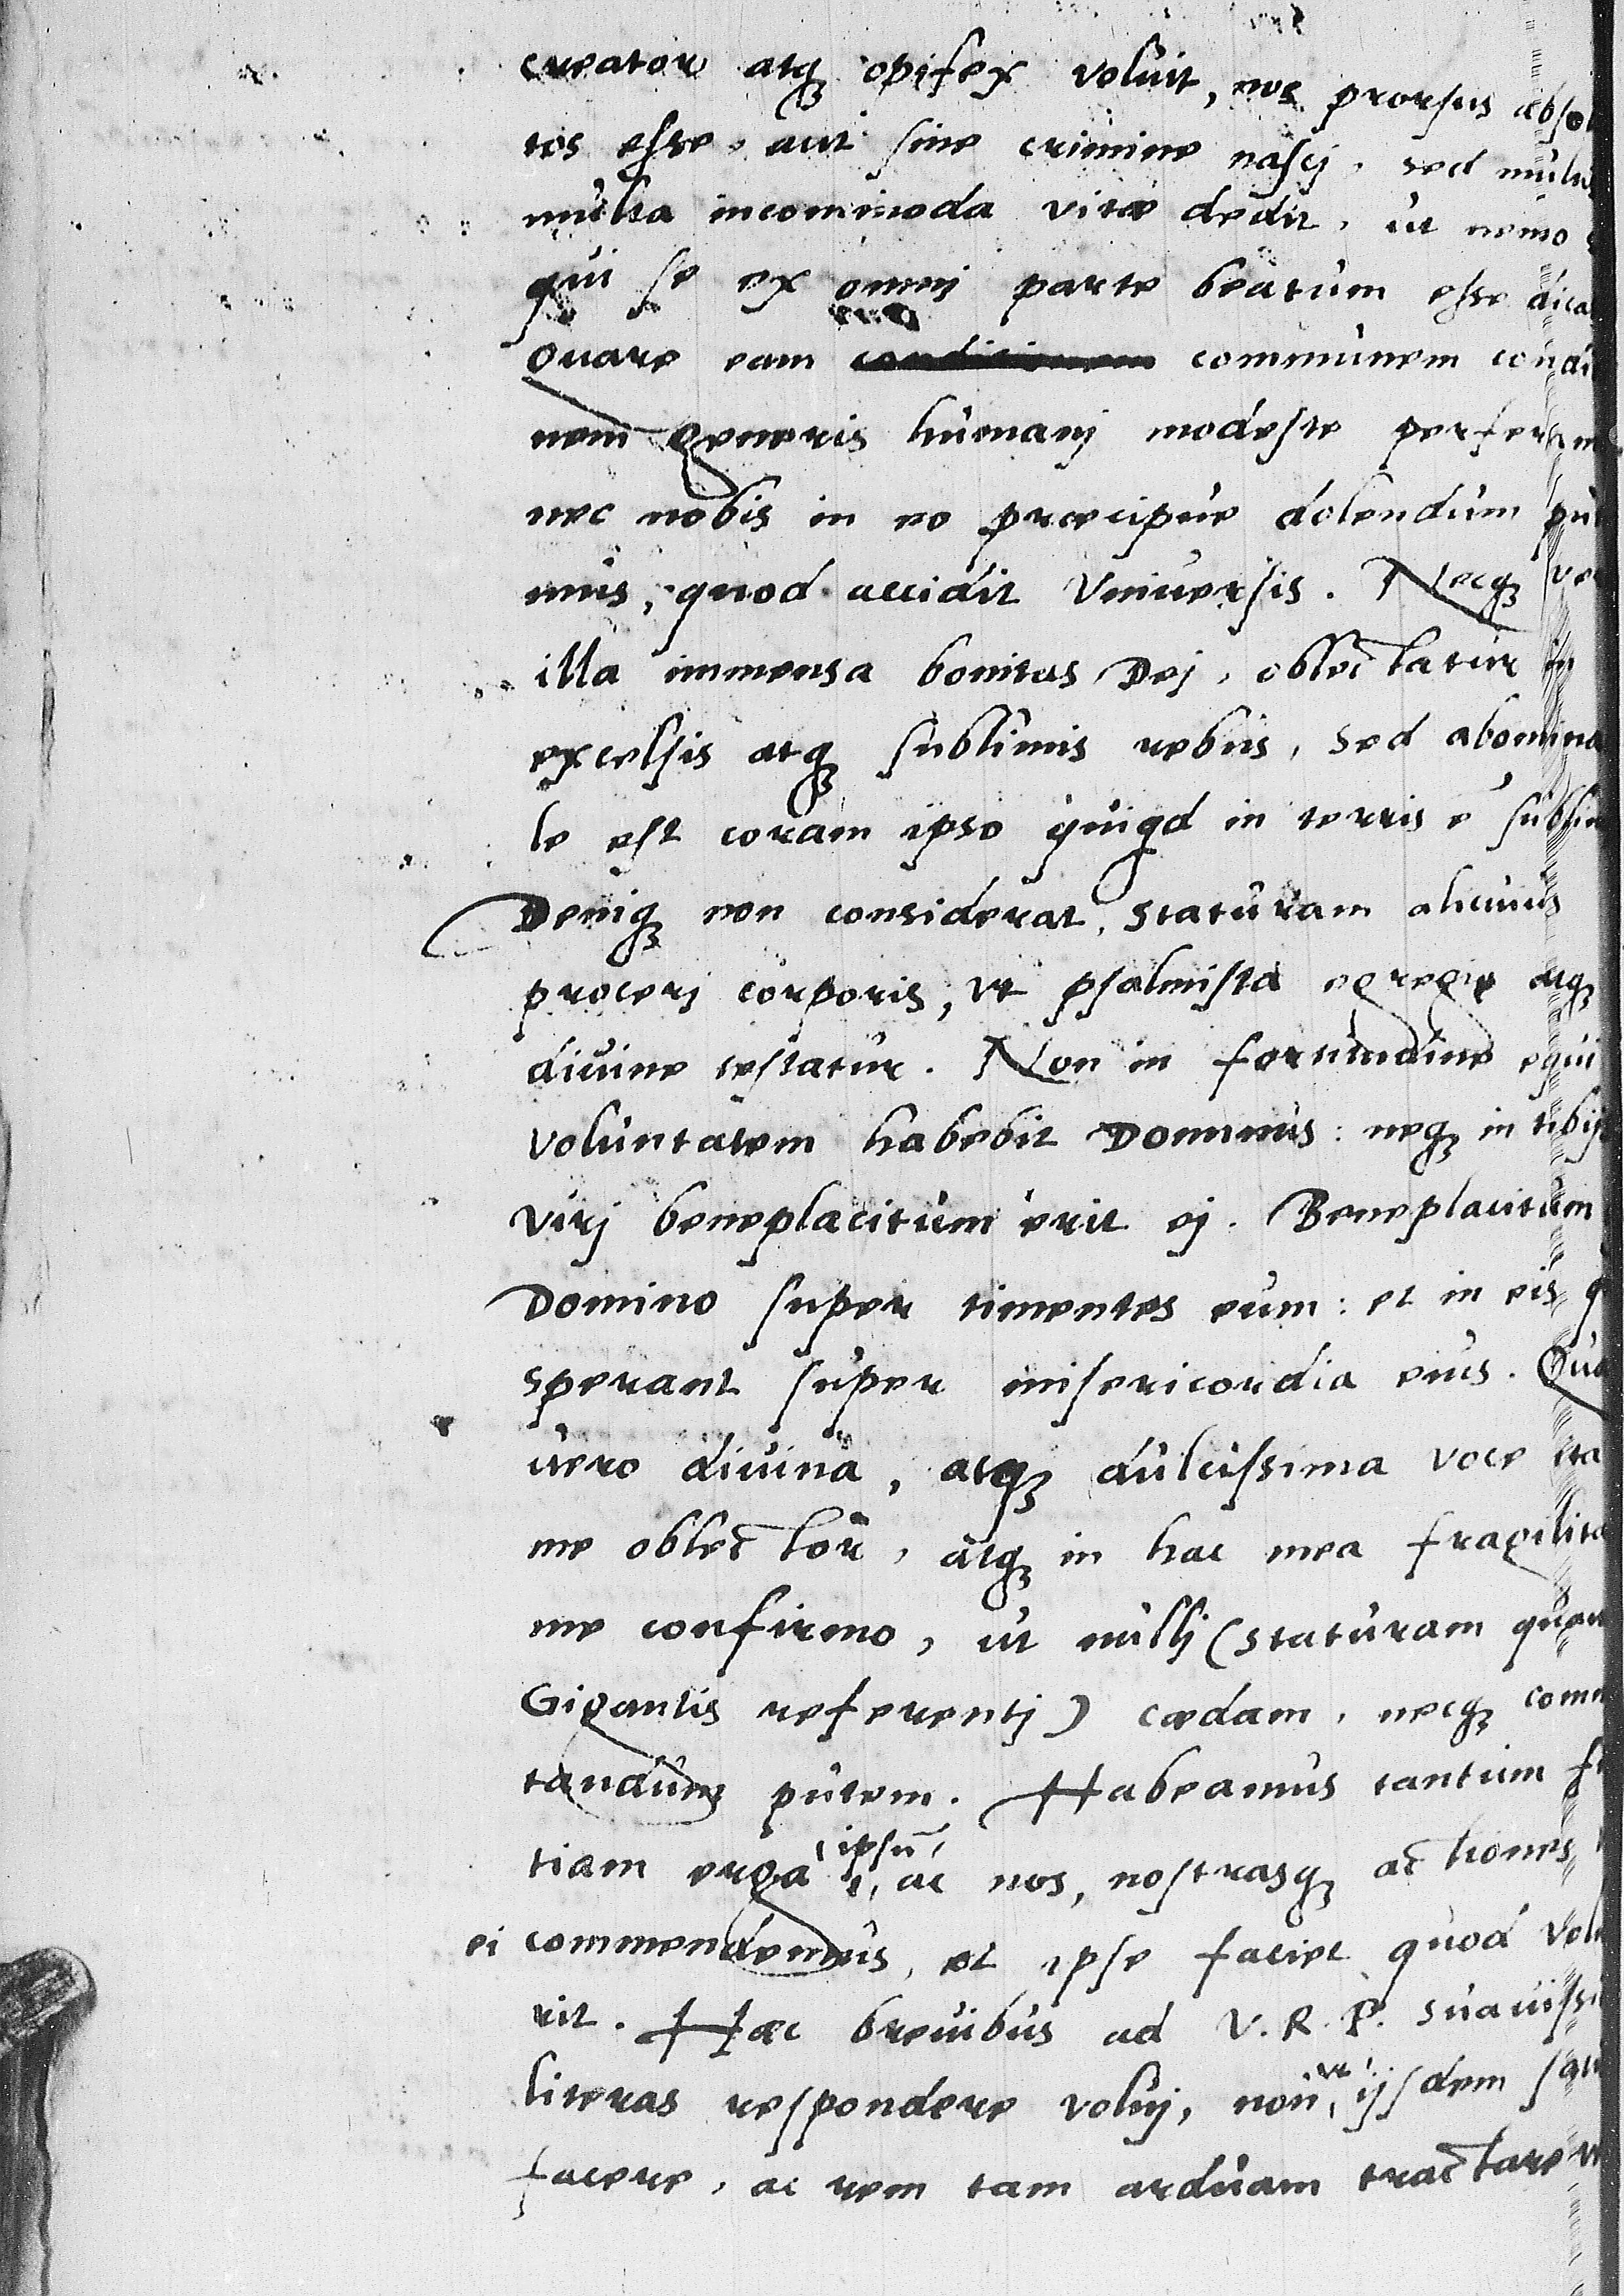 creator atq3 opifex voluit, nos prorsus absol
tos esse, aut sine crimine nascj, sed
multa incommoda vitæ dedit, ut nemo
qui se ex omnj parte beatum esse dica
Quare eam communem condi
nem generis humanj modeste perferam
nec nobis in eo præcipue dolendum pu
mus, quod accidit Vniuersis. Necq3 ve
illa immensa bonitas Dej, oblectatur in
excelsis atq3 sublimis rebus, sed abomina
le est coram ipso quiqd in terris e sublim
Deniq3 non considerat, staturam alicuius
procerj corporis, vt psalmista egregie atq3
diuine testatur. Non in fortitudine equi
voluntatem habebit Dominus: neq3 in tibijs
virj beneplacitum erit ej. Beneplacitum
Domino super timentes eum: et in eis q
sperant super misericordia eius. Qua
uero diuina, atq3 dulcissima voce ita
me oblector, atq3 in hac mea fragilita
me confirmo, ut nullj (staturam quam
Gigantis referentj) cædam, necq3 comm
tandum putem. Habeamus tantum fi
tiam erga ipsũ, ac nos, nostrasq3 actiones
ei commendemus, et ipse faciet quod volu
rit. Hæc breuibus ad V. R. P. suauissi
literas respondere voluj, non ut ijsdem
facere, ac rem tam arduam tractare